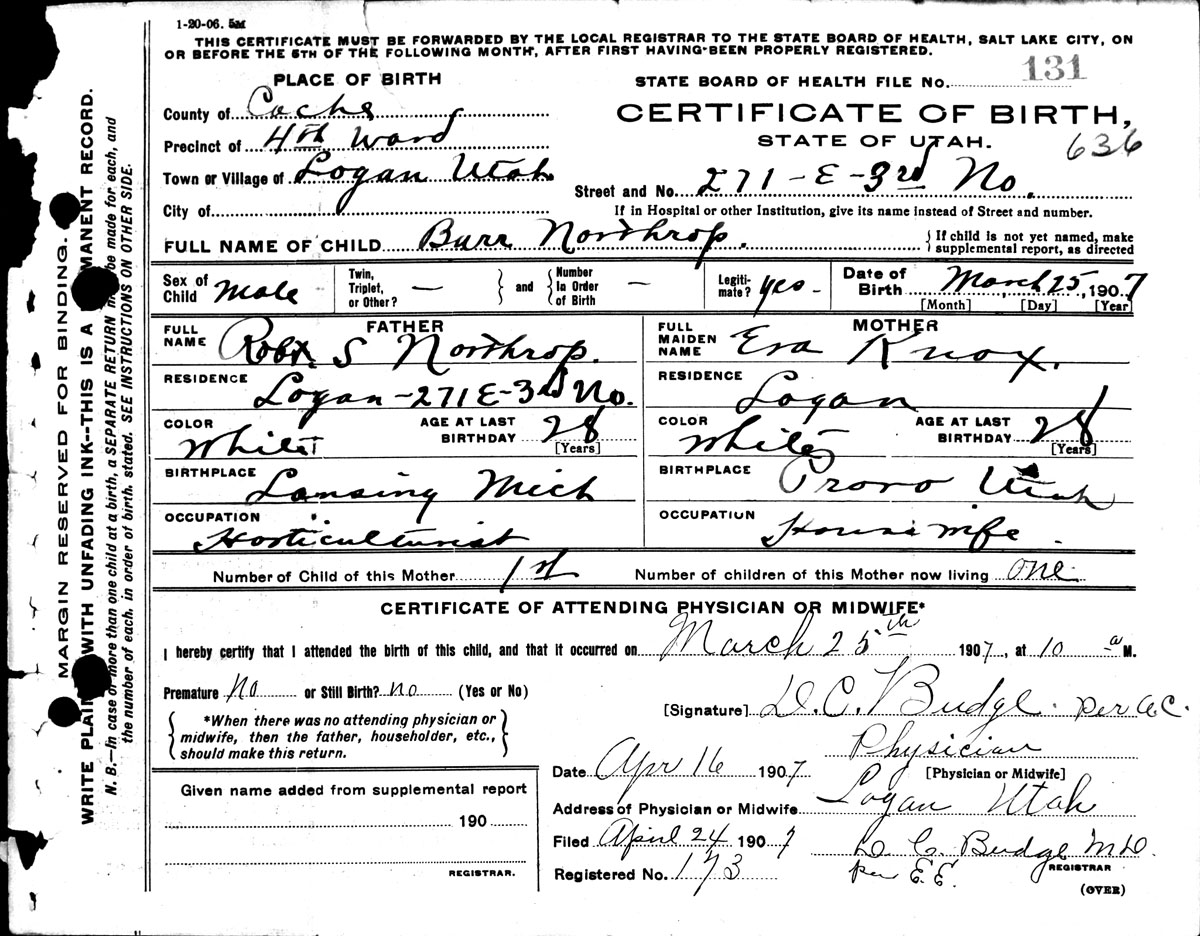 1-20-06. 5M
THIS CERTIFICATE MUST BE FORWARDED BY THE LOCAL REGISTRAR TO THE STATE BOARD OF HEALTH, SALT LAKE CITY, ON
OR BEFORE THE 5TH OF THE FOLLOWING MONTH, AFTER FIRST HAVING BEEN PROPERLY REGISTERED.
PLACE OF BIRTH
STATE BOARD OF HEALTH FILE No. 131
County of Cache
CERTIFICATE OF BIRTH,
Precinct of 4th Ward
STATE OF UTAH. 636
Town or Village of Logan Utah
Street and No. 271-E-3rd No.
City of
If in Hospital or other Institution, give its name instead of Street and number.
FULL NAME OF CHILD Burr Northrop. {If child is not yet named, make
supplemental report, as directed
Sex of Child Male
Twin, Triplet, or Other? —
and
Number In Order of Birth —
Legiti- mate? yes-
Date of Birth March 25, 1907
[Month] [Day] [Year]
FATHER
FULL NAME Robt. S Northrop.
RESIDENCE Logan-271E-3rd No.
COLOR White
AGE AT LAST BIRTHDAY 28 [Years]
BIRTHPLACE Lansing Mich
OCCUPATION Horticulturist
MOTHER
FULL MAIDEN NAME Eva Knox.
RESIDENCE Logan
COLOR White
AGE AT LAST BIRTHDAY 28 [Years]
BIRTHPLACE Provo Utah
OCCUPATION Housewife.
Number of Child of this Mother 1st Number of children of this Mother now living one
CERTIFICATE OF ATTENDING PHYSICIAN OR MIDWIFE*
I hereby certify that I attended the birth of this child, and that it occurred on March 25th 1907, at 10 a M.
Premature No or Still Birth? no (Yes or No)
[Signature] D.C. Budge. per a.c.
{*When there was no attending physician or
midwife, then the father, householder, etc.,
should make this return.}
Physician
[Physician or Midwife]
Date Apr 16 1907
Address of Physician or Midwife Logan Utah
Filed April 24 1907 D C Budge M D.
REGISTRAR
Registered No. 173 per E.E.
(OVER)
Given name added from supplemental report
190
REGISTRAR.
MARGIN RESERVED FOR BINDING.
WRITE PLAIN WITH UNFADING INK--THIS IS A MANENT RECORD.
N. B.—In case of more than one child at a birth, a SEPARATE RETURN be made for each, and
the number of each, in order of birth, stated. SEE INSTRUCTIONS ON OTHER SIDE.